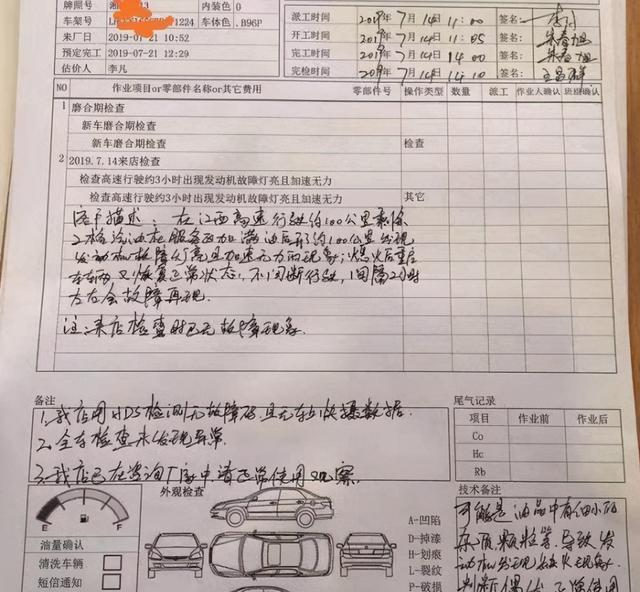 牌照号 内装色 0
车架号 1224 车体色 .B96P
来厂日 2019-07-21 10:52
预定完工 2019-07-21 12:29
估价人 李凡
派工时间 2019年7月14日 11:00 签名:
开工时间 2019年7月14日 11:05 签名:
完工时间 2019年7月14日 14:00 签名:
完检时间 2019年7月14日 14:10 签名:
NO 作业项目or零部件名称or其它费用 零部件号 操作类型 数量 派工 作业人确认 班组确认
1 磨合期检查
新车磨合期检查
新车磨合期检查 检查
2 2019.7.14来店检查
检查高速行驶约3小时出现发动机故障灯亮且加速无力
检查高速行驶约3小时出现发动机故障灯亮且加速无力 其它
客户描述:在江西高速行驶约100公里剩余
2格汽油在服务区加满油后行约100公里出现
发动机故障灯亮且加速无力的现象;熄火后重启
车辆又恢复正常状态,不间断行驶,间隔2小时
左右会故障再现.
注:来店检查时已无故障现象.
备注
1.我店用HDS检测无故障码且无车辆快摄数据.
2.全车检查未发现异常.
3.我店已在咨询厂家中请正常使用观察.
尾气记录
项目 作业前 作业后
Co
Hc
Rb
外观检查
E F
油量确认
清洗车辆
短信通知
A-凹陷
D-掉漆
H-划痕
L-裂纹
P-破损
技术备注
可能是油品中有细小的
杂质颗粒等.导致发
动机出现缺火现象.
判断偶发 正常使用